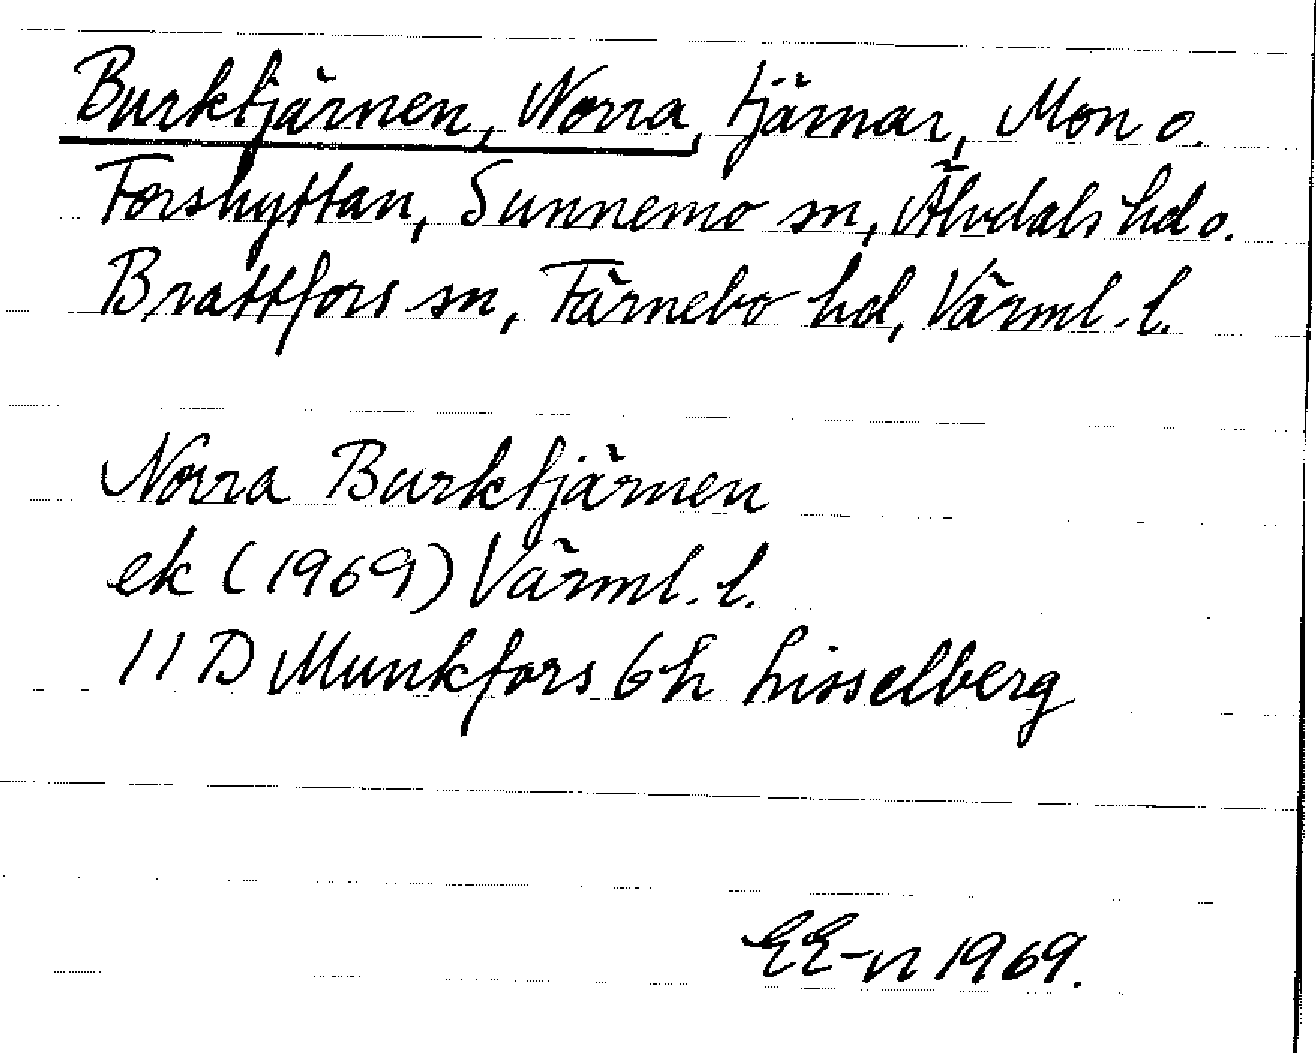 Burktjärnen, Norra, tjärnar, Mon o.
Forshyttan, Sunnemo sn, Älvdals hd o.
Brattfors sn, Färnebo hd, Värml. l.
Norra Burktjärnen
ek (1969) Värml. l.
11 D Munkfors 6 h Lisselberg
EE-n 1969.